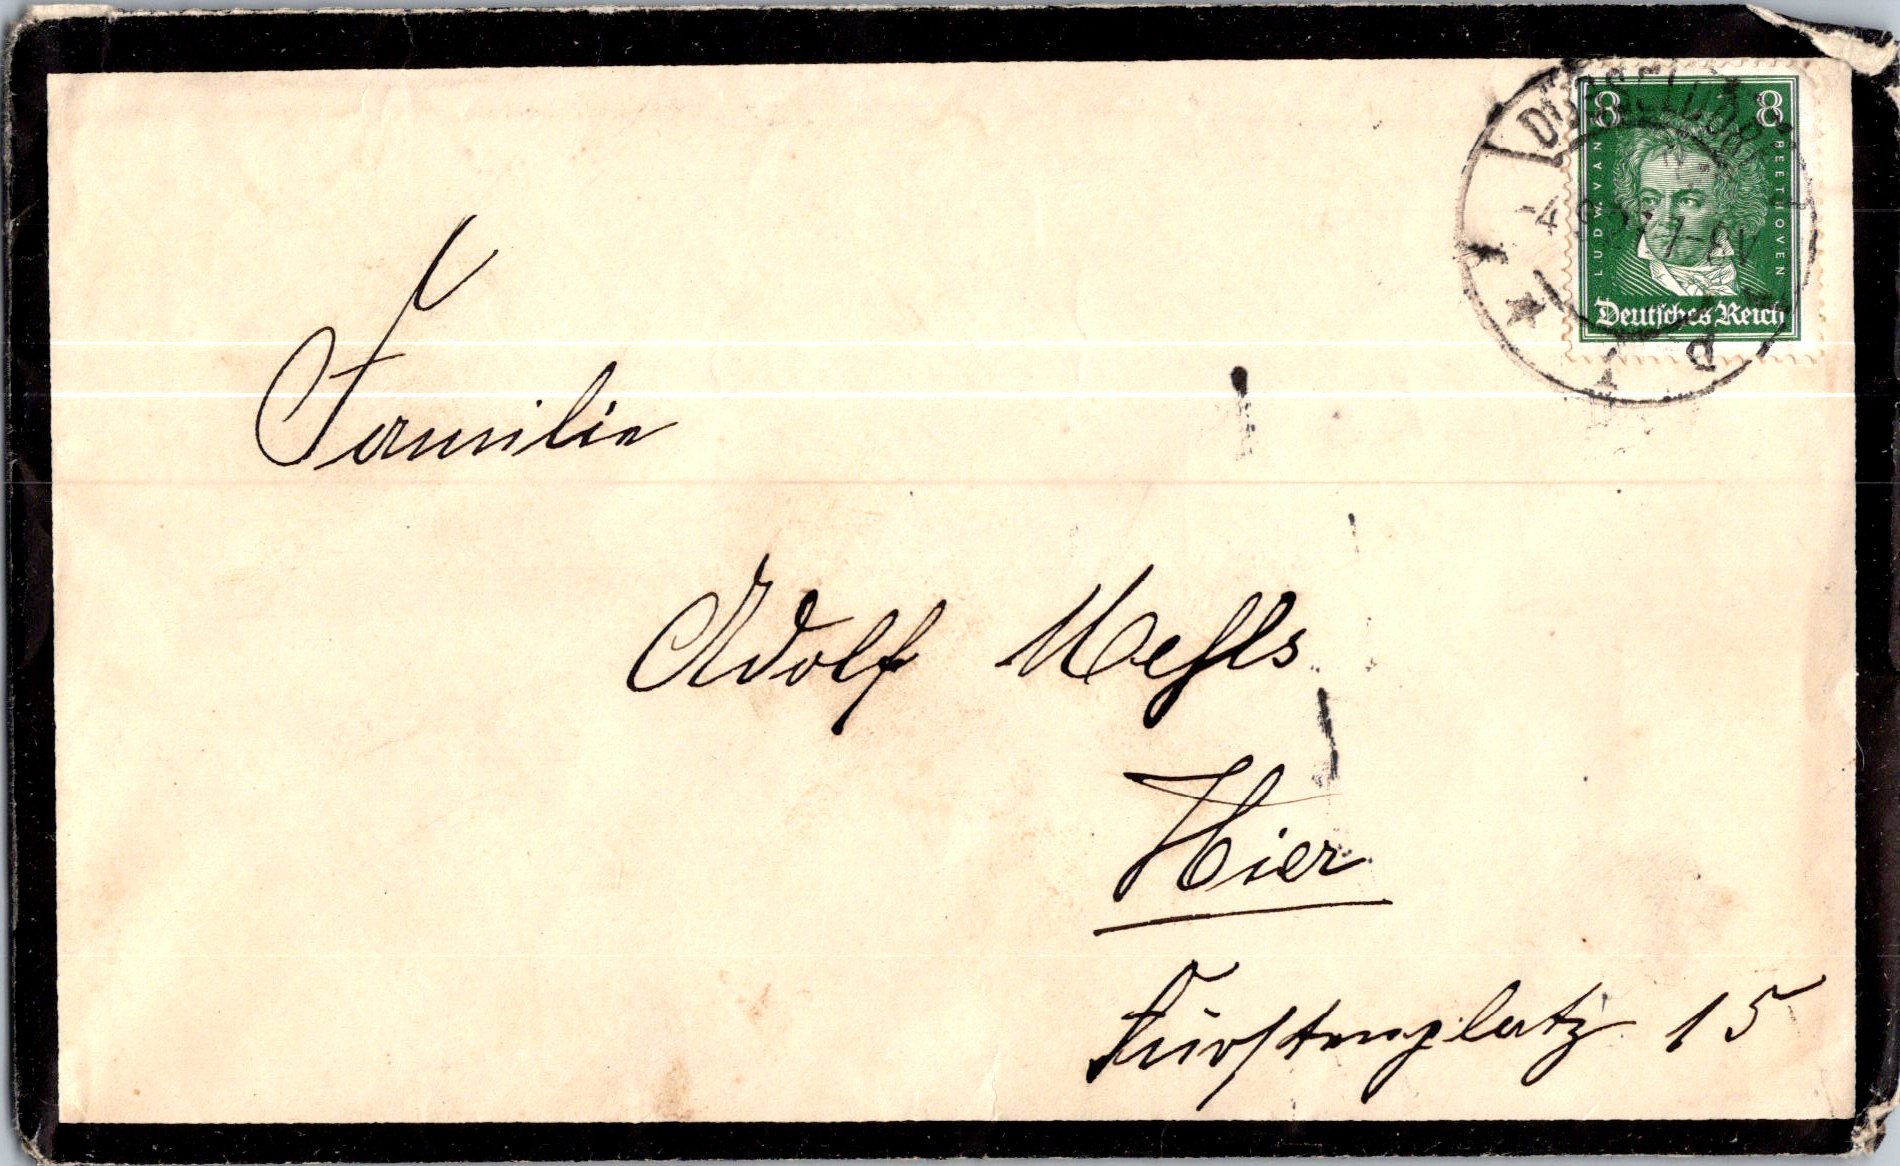 DÜSSELDORF
8 8
LUDW. VAN BEETHOVEN
Deutsches Reich
Familie
Adolf
Hier
Fürstenplatz 15